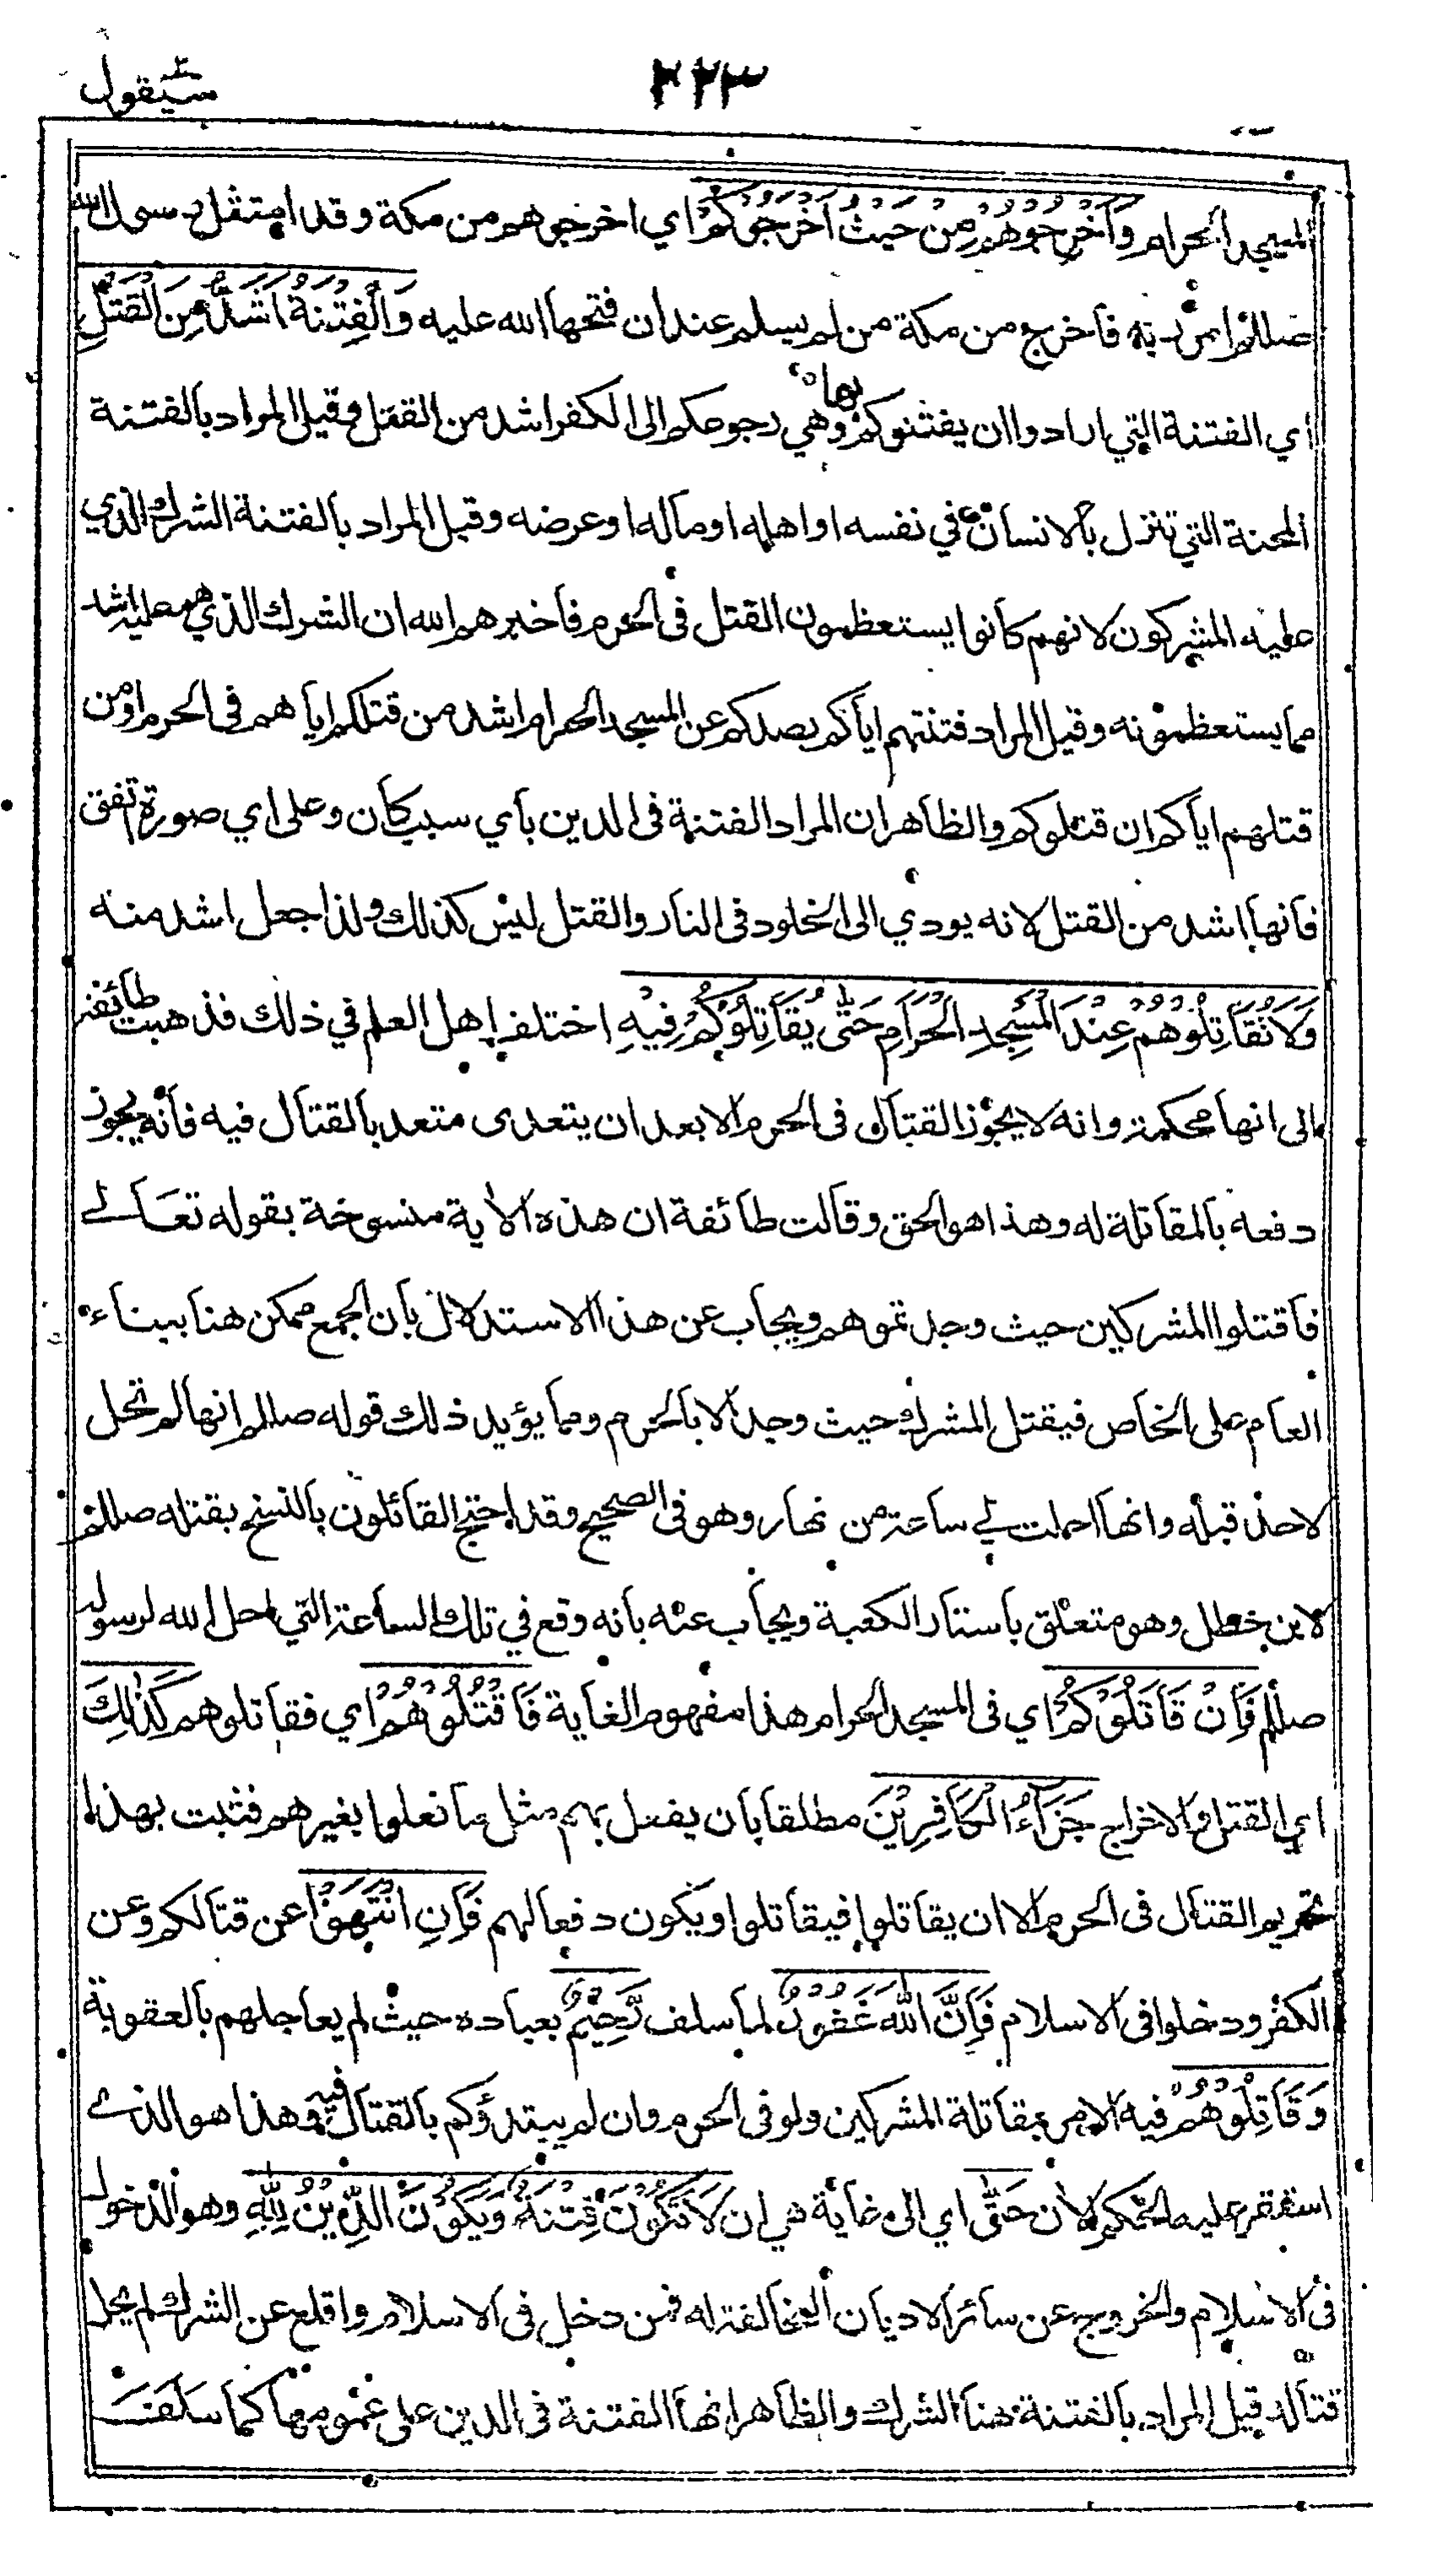 سيقول ٢
٢٢٣
المسجد الحرام وَاَخْرِجُوْهُمْ مِنْ حَيْثُ اَخْرَجُوْكُمْ اي اخرجوهم من مكة وقد امتثل رسول الله
صللم امر ربه فاخرج من مكة من لم يسلم عند ان فتحها الله عليه وَالْفِتْنَةُ اَشَدُّ مِنَ الْقَتْلِ
اي الفتنة التي ارادوا ان يفتنوكم بها وهي رجوعكم الى الكفر اشد من القتل وقيل المراد بالفتنة
المحنة التي تنزل بالانسان في نفسه او اهله او ماله او عرضه وقيل المراد بالفتنة الشرك الذي
عليه المشركون لانهم كانوا يستعظمون القتل فى الحرم فاخبرهم الله ان الشرك الذي هم عليه اشد
مما يستعظمونه وقيل المراد فتنتهم اياكم بصدكم عن المسجد الحرام اشد من قتلكم اياهم فى الحرم او من
قتلهم اياكم ان قتلوكم والظاهر ان المراد الفتنة فى الدين باي سبب كان وعلى اي صورة اتفق
فانها اشد من القتل لانه يودي الى الخلود فى النار والقتل ليس كذلك ولذا جعل اشد منه
وَلَا تُقَاتِلُوْهُمْ عِنْدَ الْمَسْجِدِ الْحَرَامِ حَتّٰى يُقَاتِلُوْكُمْ فِيْهِ اختلف اهل العلم في ذلك فذهبت طائفة
الى انها محكمة وانه لا يجوز القتال فى الحرم الا بعد ان يتعدى متعد بالقتال فيه فانه يجوز
دفعه بالمقاتلة له وهذا هو الحق وقالت طائفة ان هذه الاٰية منسوخة بقوله تعالے
فاقتلوا المشركين حيث وجدتموهم ويجاب عن هذا الاستدلال بان الجمع ممكن هنا ببناء
العام على الخاص فيقتل المشرك حيث وجد الا بالحرم ومما يؤيد ذلك قوله صللم انها لم تحل
لاحد قبله وانها احلت لے ساعة من نهار وهو فى الصحيح وقد احتج القائلون بالنسخ بقتله صللم
لابن خطل وهو متعلق باستار الكعبة ويجاب عنه بانه وقع في تلك الساعة التي احل الله لرسوله
صللم فَاِنْ قَاتَلُوْكُمْ اي فى المسجد الحرام هذا مفهوم الغاية فَاقْتُلُوْهُمْ اي فقاتلوهم كَذٰلِكَ
اي القتل والاخراج جَزَاءُ الْكَافِرِيْنَ مطلقا بان يفعل بهم مثل ما فعلوا بغيرهم فثبت بهذا
تحريم القتال فى الحرم الا ان يقاتلوا فيقاتلوا ويكون دفعا لهم فَاِنِ انْتَهَوْا عن قتالكم وعن
الكفر ودخلوا فى الاسلام فَاِنَّ اللّٰهَ غَفُوْرٌ لما سلف رَّحِيْمٌ بعباده حيث لم يعاجلهم بالعقوبة
وَقَاتِلُوْهُمْ فيه الامر بمقاتلة المشركين ولو فى الحرم وان لم يبتدؤكم بالقتال فيه وهذا هو الذے
استقر عليه الحكم الاٰن حَتّٰى اي الى غاية هي ان لَا تَكُوْنَ فِتْنَةٌ وَّيَكُوْنَ الدِّيْنُ لِلّٰهِ وهو الدخول
فى الاسلام والخروج عن سائر الاديان المخالفة له فمن دخل فى الاسلام واقلع عن الشرك لم يحل
قتاله قيل المراد بالفتنة هنا الشرك والظاهر انها الفتنة فى الدين على عمومها كما سلفت